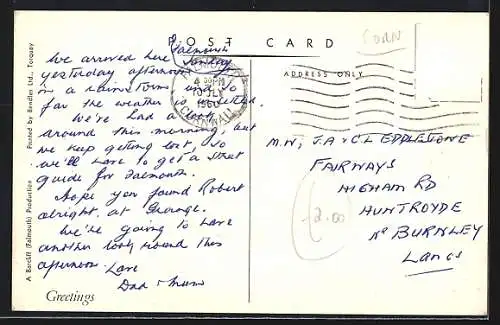 POST CARD
CORN
ADDRESS ONLY
Falmouth
Sunday
We arrived here
yesterday afternoon
in a rainstorm and so
far the weather is unsettled.
We've had a look
around this morning, but
we keep getting lost, so
we'll have to get a street
guide for Falmouth.
Hope you found Robert
alright, at Grange.
We're going to have
another look round this
afternoon. Love
Dad & Mum
Greetings
A Bardill (Falmouth) Production
Printed by Bendles Ltd., Torquay
4 30 PM
10 JLY
1960
CORNWALL
M/N, J.A & C.L EDDLESTONE
FAIRWAYS
HIGHAM RD
HUNTROYDE
Nr BURNLEY
LANCS
2.00